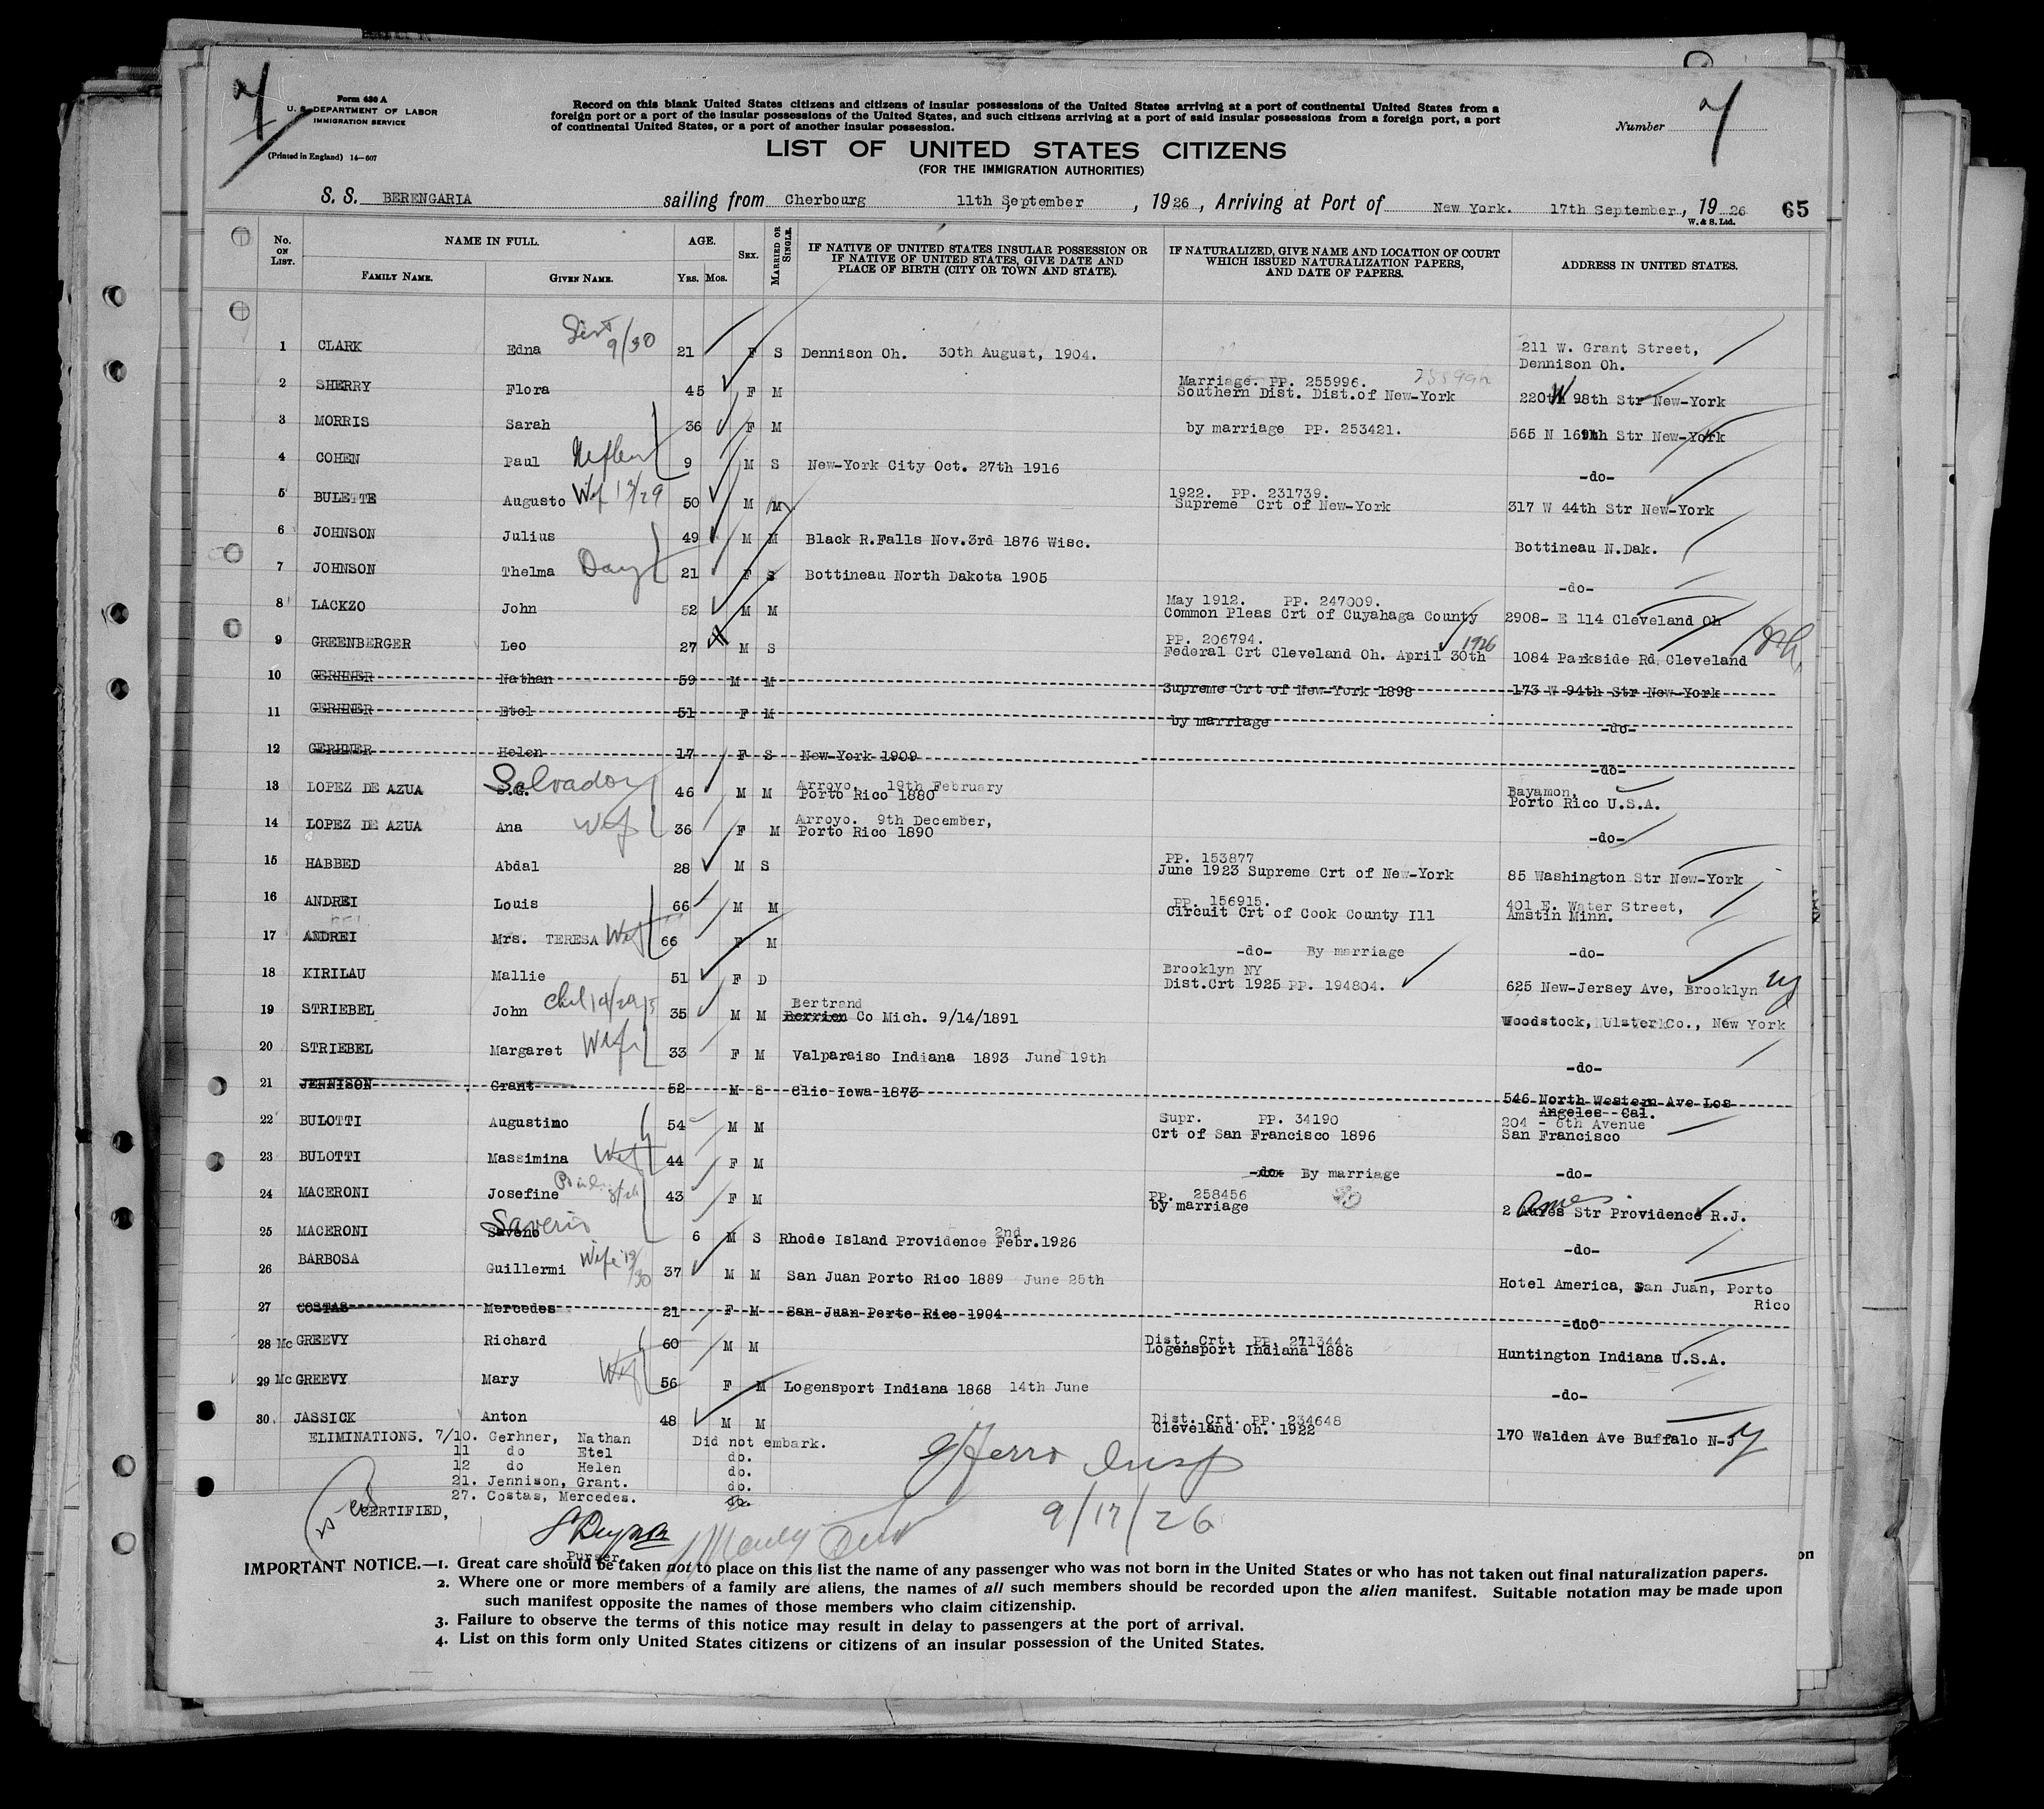 7
Form 630 A
U. S. DEPARTMENT OF LABOR
IMMIGRATION SERVICE
(Printed in England) 14—607
Record on this blank United States citizens and citizens of insular possessions of the United States arriving at a port of continental United States from a
foreign port or a port of the insular possessions of the United States, and such citizens arriving at a port of said insular possessions from a foreign port, a port
of continental United States, or a port of another insular possession.
Number 7
LIST OF UNITED STATES CITIZENS
(FOR THE IMMIGRATION AUTHORITIES)
S. S. BERENGARIA sailing from Cherbourg 11th September, 1926, Arriving at Port of New York. 17th September, 1926 65
W. & S. Ltd.
No. ON LIST. NAME IN FULL. FAMILY NAME. GIVEN NAME. AGE. YRS. MOS. SEX. MARRIED OR SINGLE. IF NATIVE OF UNITED STATES INSULAR POSSESSION OR IF NATIVE OF UNITED STATES, GIVE DATE AND PLACE OF BIRTH (CITY OR TOWN AND STATE). IF NATURALIZED, GIVE NAME AND LOCATION OF COURT WHICH ISSUED NATURALIZATION PAPERS, AND DATE OF PAPERS. ADDRESS IN UNITED STATES.
1 CLARK Edna 9/30 21 F S Dennison Oh. 30th August, 1904. 211 W. Grant Street, Dennison Oh.
2 SHERRY Flora 45 F M Marriage. PP. 255996. Southern Dist. Dist.of New-York 220 W 98th Str New-York
3 MORRIS Sarah 36 F M by marriage PP. 253421. 565 N Str New-York
4 COHEN Paul Nephew 9 M S New-York City Oct. 27th 1916 -do-
5 BULETTE Augusto Wif 50 M M 1922. PP. 231739. Supreme Crt of New-York 317 W 44th Str New-York
6 JOHNSON Julius 49 M M Black R.Falls Nov.3rd 1876 Wisc. Bottineau N.Dak.
7 JOHNSON Thelma Daug 21 F S Bottineau North Dakota 1905 -do-
8 LACKZO John 52 M M May 1912. PP. 247009. Common Pleas Crt of Cuyahaga County 2908- E 114 Cleveland Oh
9 GREENBERGER Leo 27 M S PP. 206794. Federal Crt Cleveland Oh. April 30th 1926 1084 Parkside Rd. Cleveland Oh
10 GERHNER Nathan 59 M M Supreme Crt of New-York 1898 173 W 94th Str New-York
11 GERHNER Etel 51 F M by marriage -do-
12 GERHNER Helen 17 F S New-York 1909 -do-
13 LOPEZ DE AZUA S.G. Salvador 46 M M Arroyo, 19th February Porto Rico 1880 Bayamon, Porto Rico U.S.A.
14 LOPEZ DE AZUA Ana Wif 36 F M Arroyo. 9th December, Porto Rico 1890 -do-
15 HABBED Abdal 28 M S PP. 153877 June 1923 Supreme Crt of New-York 85 Washington Str New-York
16 ANDREI Louis 66 M M PP. 156915. Circuit Crt of Cook County Ill 401 E. Water Street, Amstin Minn.
17 ANDREI Mrs. TERESA Wif 66 F M -do- By marriage -do-
18 KIRILAU Mallie 51 F D Brooklyn NY Dist.Crt 1925 PP. 194804. 625 New-Jersey Ave, Brooklyn NY
19 STRIEBEL John 35 M M Bertrand Berrien Co Mich. 9/14/1891 Woodstock, Ulster Co., New York
20 STRIEBEL Margaret Wif 33 F M Valparaiso Indiana 1893 June 19th -do-
21 JENNISON Grant 52 M S Clio Iowa 1873 546 North Western Ave Los Angeles Cal.
22 BULOTTI Augustino 54 M M Supr. PP. 34190 Crt of San Francisco 1896 204 - 6th Avenue San Francisco
23 BULOTTI Massimina Wif 44 F M -do- By marriage -do-
24 MACERONI Josefine 43 F M PP. 258456 by marriage 2 Ames Str Providence R.J.
25 MACERONI Saveno Saverio 6 M S Rhode Island Providence 2nd Febr.1926 -do-
26 BARBOSA Guillermi Wife 37 M M San Juan Porto Rico 1889 June 25th Hotel America, San Juan, Porto Rico
27 COSTAS Mercedes 21 F M San Juan Porto Rico 1904 -do0
28 Mc GREEVY Richard 60 M M Dist. Crt. PP. 271344. Logensport Indiana 1886 Huntington Indiana U.S.A.
29 Mc GREEVY Mary Wif 56 F M Logensport Indiana 1868 14th June -do-
30 JASSICK Anton 48 M M Dist. Crt. PP. 234648 Cleveland Oh. 1922 170 Walden Ave Buffalo N-Y
ELIMINATIONS. 7/10. Gerhner, Nathan Did not embark.
11 do Etel do.
12 do Helen do.
21. Jennison, Grant. do.
27. Costas, Mercedes. do.
CERTIFIED,
Insp
9/17/26
Purser.
IMPORTANT NOTICE.—1. Great care should be taken not to place on this list the name of any passenger who was not born in the United States or who has not taken out final naturalization papers.
2. Where one or more members of a family are aliens, the names of all such members should be recorded upon the alien manifest. Suitable notation may be made upon
such manifest opposite the names of those members who claim citizenship.
3. Failure to observe the terms of this notice may result in delay to passengers at the port of arrival.
4. List on this form only United States citizens or citizens of an insular possession of the United States.
on